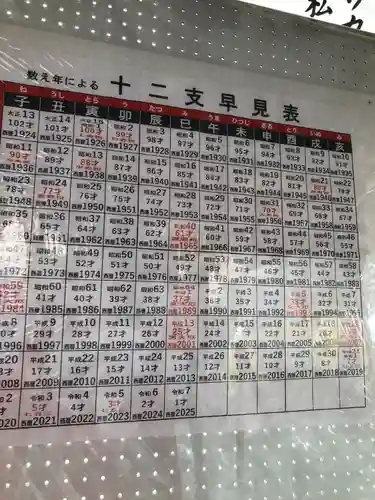 サカ
私
数え年による 十二支早見表
ね うし とら う たつ み うま ひつじ さる とり いぬ ゐ
子 丑 寅 卯 辰 巳 午 未 申 酉 戌 亥
大正13 大正14 大正15 昭和2 昭和3 昭和4 昭和5 昭和6 昭和7 昭和8 昭和9 昭和10
102才 101才 100才 99才 98才 97才 96才 95才 94才 93才 92才 91才
西暦1924 西暦1925 西暦1926 西暦1927 西暦1928 西暦1929 西暦1930 西暦1931 西暦1932 西暦1933 西暦1934 西暦1935
昭和11 昭和12 昭和13 昭和14 昭和15 昭和16 昭和17 昭和18 昭和19 昭和20 昭和21 昭和22
90才 89才 88才 87才 86才 85才 84才 83才 82才 81才 80才 79才
西暦1936 西暦1937 西暦1938 西暦1939 西暦1940 西暦1941 西暦1942 西暦1943 西暦1944 西暦1945 西暦1946 西暦1947
昭和23 昭和24 昭和25 昭和26 昭和27 昭和28 昭和29 昭和30 昭和31 昭和32 昭和33 昭和34
78才 77才 76才 75才 74才 73才 72才 71才 70才 69才 68才 67才
西暦1948 西暦1949 西暦1950 西暦1951 西暦1952 西暦1953 西暦1954 西暦1955 西暦1956 西暦1957 西暦1958 西暦1959
昭和36 昭和37 昭和38 昭和39 昭和40 昭和41 昭和42 昭和43 昭和44 昭和45 昭和46
65才 64才 63才 62才 61才 60才 59才 58才 57才 56才 55才
西暦1961 西暦1962 西暦1963 西暦1964 西暦1965 西暦1966 西暦1967 西暦1968 西暦1969 西暦1970 西暦1971
昭和48 昭和49 昭和50 昭和51 昭和52 昭和53 昭和54 昭和55 昭和56 昭和57 昭和58
52才 51才 50才 49才 48才 47才 46才 45才 44才 43才
1972 西暦1973 西暦1974 西暦1975 西暦1976 西暦1977 西暦1978 西暦1979 西暦1980 西暦1981 西暦1982 西暦1983
昭和60 昭和61 昭和62 昭和63 平成2 平成3 平成4 平成5 平成6 平成7
41才 40才 39才 38才 37才 36才 35才 34才 33才 32才 31才
1984 西暦1985 西暦1986 西暦1987 西暦1988 西暦1989 西暦1990 西暦1991 西暦1992 西暦1993 西暦1994 西暦1995
平成9 平成10 平成11 平成12 平成13 平成14 平成15 平成16 平成17 平成18
29才 28才 27才 26才 25才 24才 23才 22才 21才 20才
1996 西暦1997 西暦1998 西暦1999 西暦2000 西暦2001 西暦2002 西暦2003 西暦2004 西暦2005 西暦2006
20 平成21 平成22 平成23 平成24 平成25 平成26 平成27 平成28 平成29 平成30
才 17才 16才 15才 14才 13才 12才 11才 10才 9才 8才
2008 西暦2009 西暦2010 西暦2011 西暦2012 西暦2013 西暦2014 西暦2015 西暦2016 西暦2017 西暦2018 西暦2019
2 令和3 令和4 令和5 令和6 令和7
才 5才 4才 3才 2才 1才
西暦2021 西暦2022 西暦2023 西暦2024 西暦2025